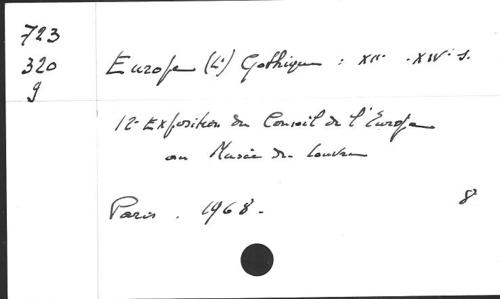 723
320
g
Europe (L') Gothique : XIIe - XIVe s.
12e Exposition du Conseil de l'Europe
au Musée du Louvre
Paris . 1968 -
8°